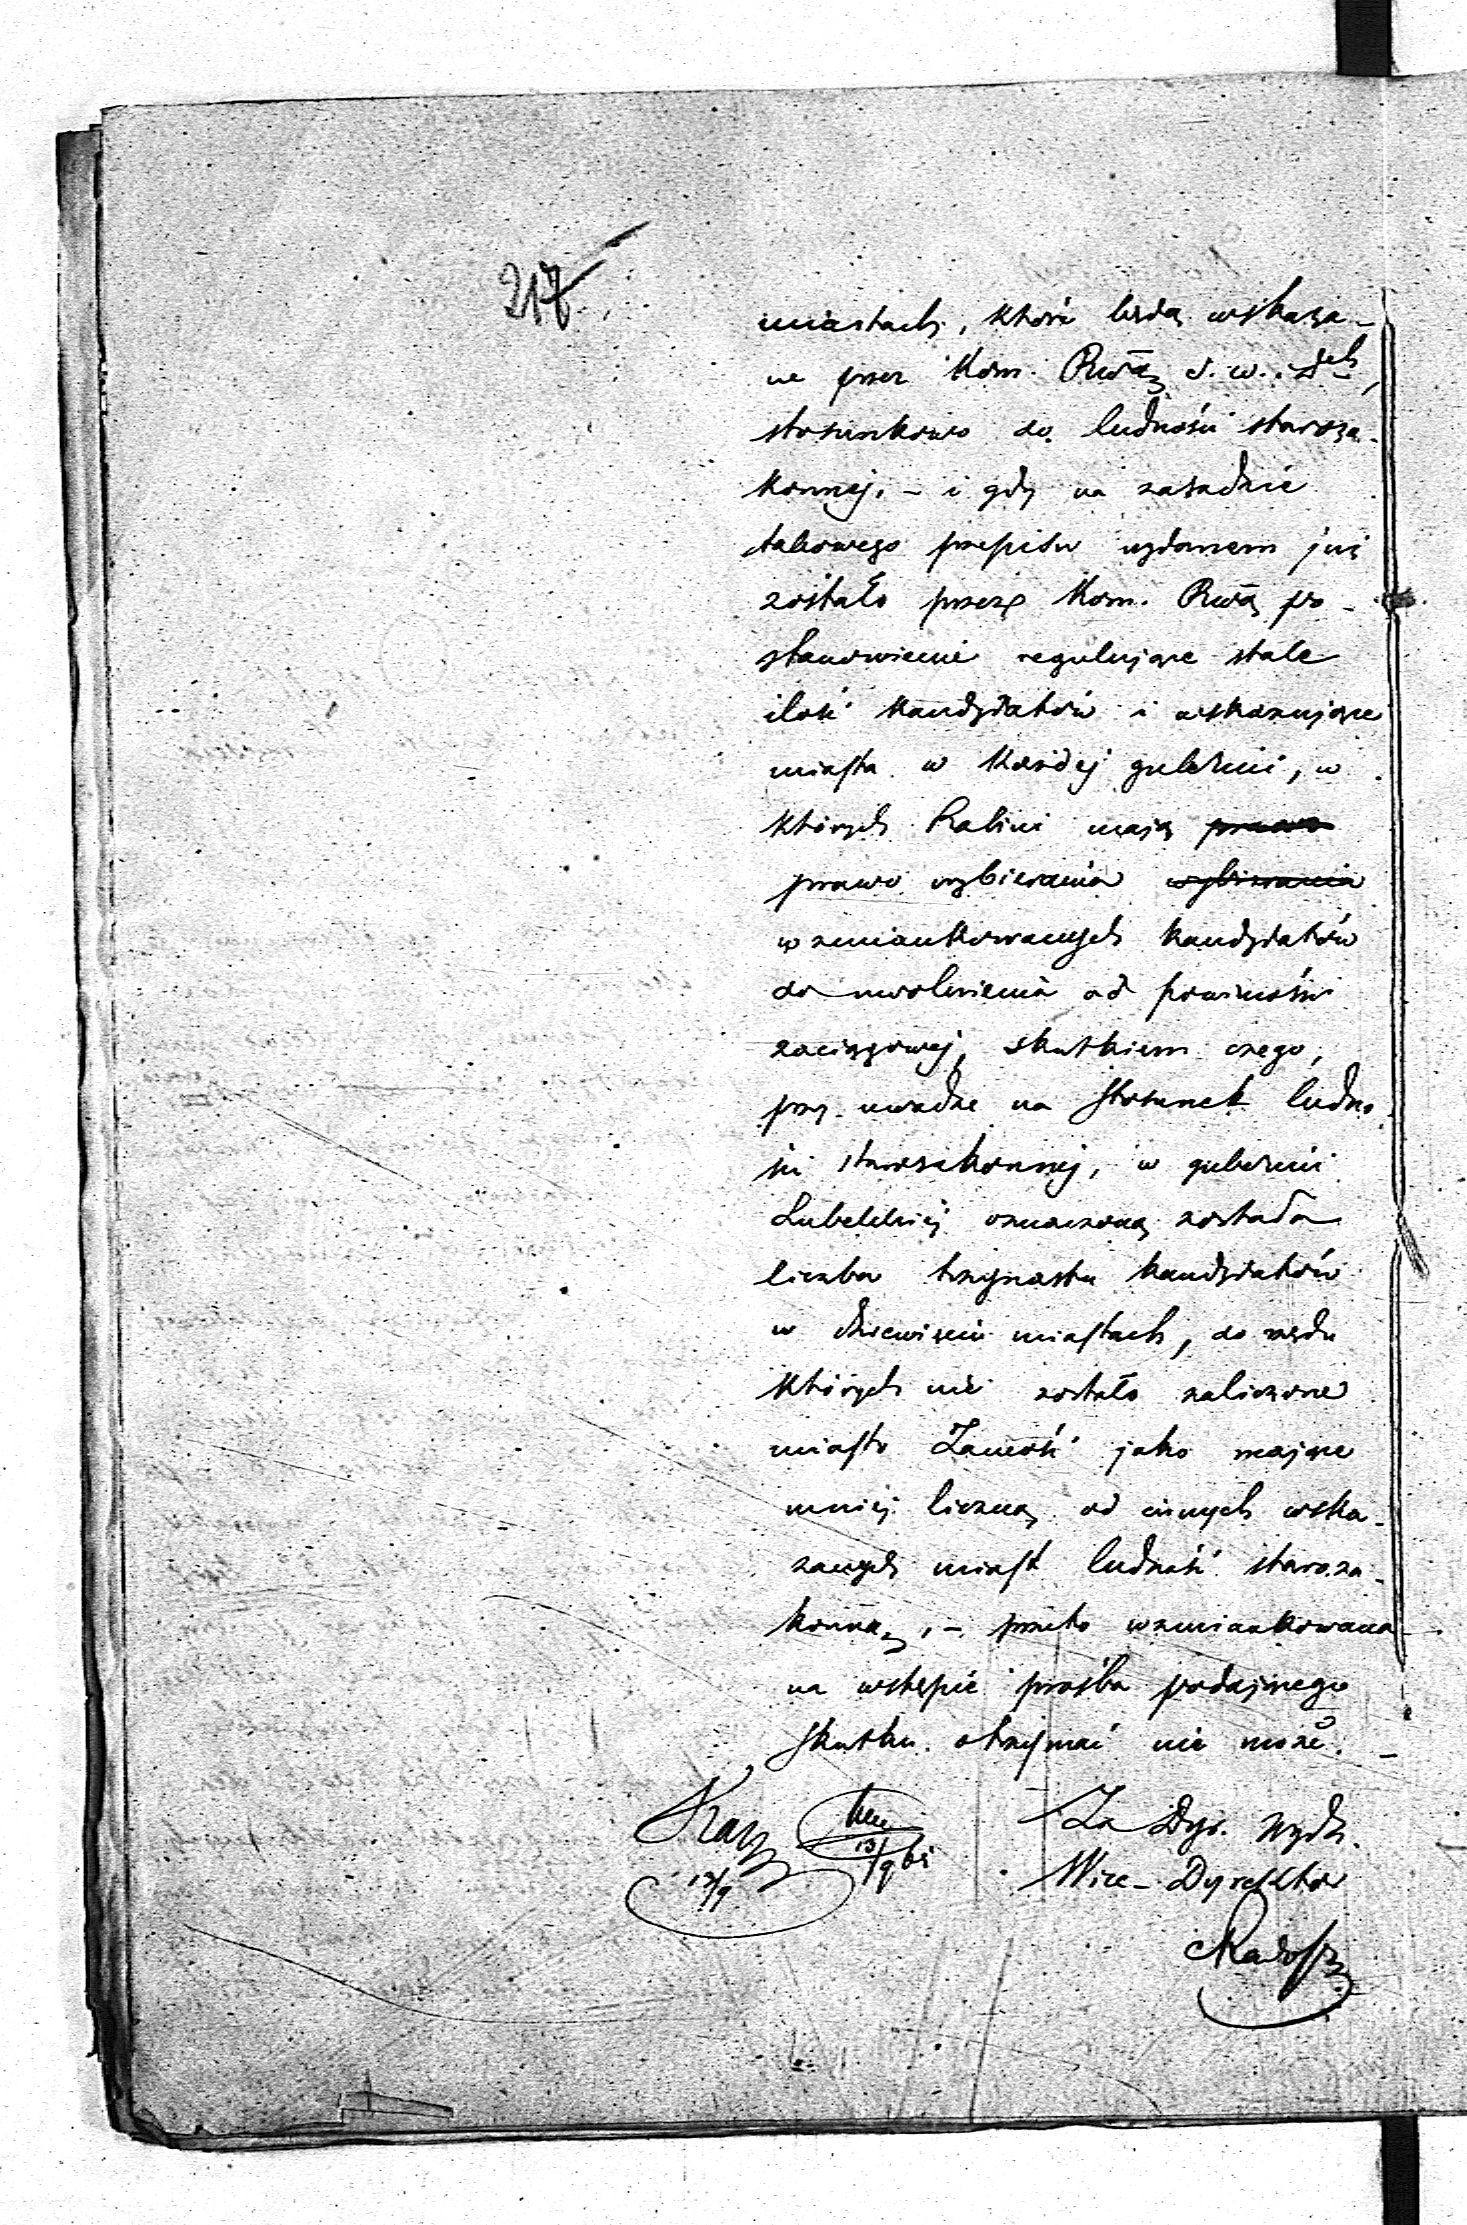 217
miastach, które będą wskaza-
ne przez Kom. Rwą S. w. i D ch,
stosunkowo do ludności staroza-
konnej. – i gdy na zasadzie
takowego przepisu wydanem już
zostało przez Kom. Rwą po-
stanowienie regulujące stale
ilość kandydatów i wskazujące
miasta w każdej gubernii, w
których Rabini mają prawo
prawo wybierania wybierania
wzmiankowanych kandydatów
do uwolnienia od powinności
zaciągowej, skutkiem czego,
przy uwadze na stosunek ludno
ści starozakonnej, w gubernii
Lubelskiej oznaczoną została
liczba trzynastu kandydatów
w dziewięciu miastach, do rzędu
których nie zostało zaliczone
miasto Zamość jako mające
mniej liczną od innych wska-
zanych miast ludność staroza-
konną, – przeto wzmiankowana
na wstępie prośba podającego
skutku otrzymać nie może. –
Za Dyr. Wydz.
13/9 bi
Wice-Dyrektor
12/9